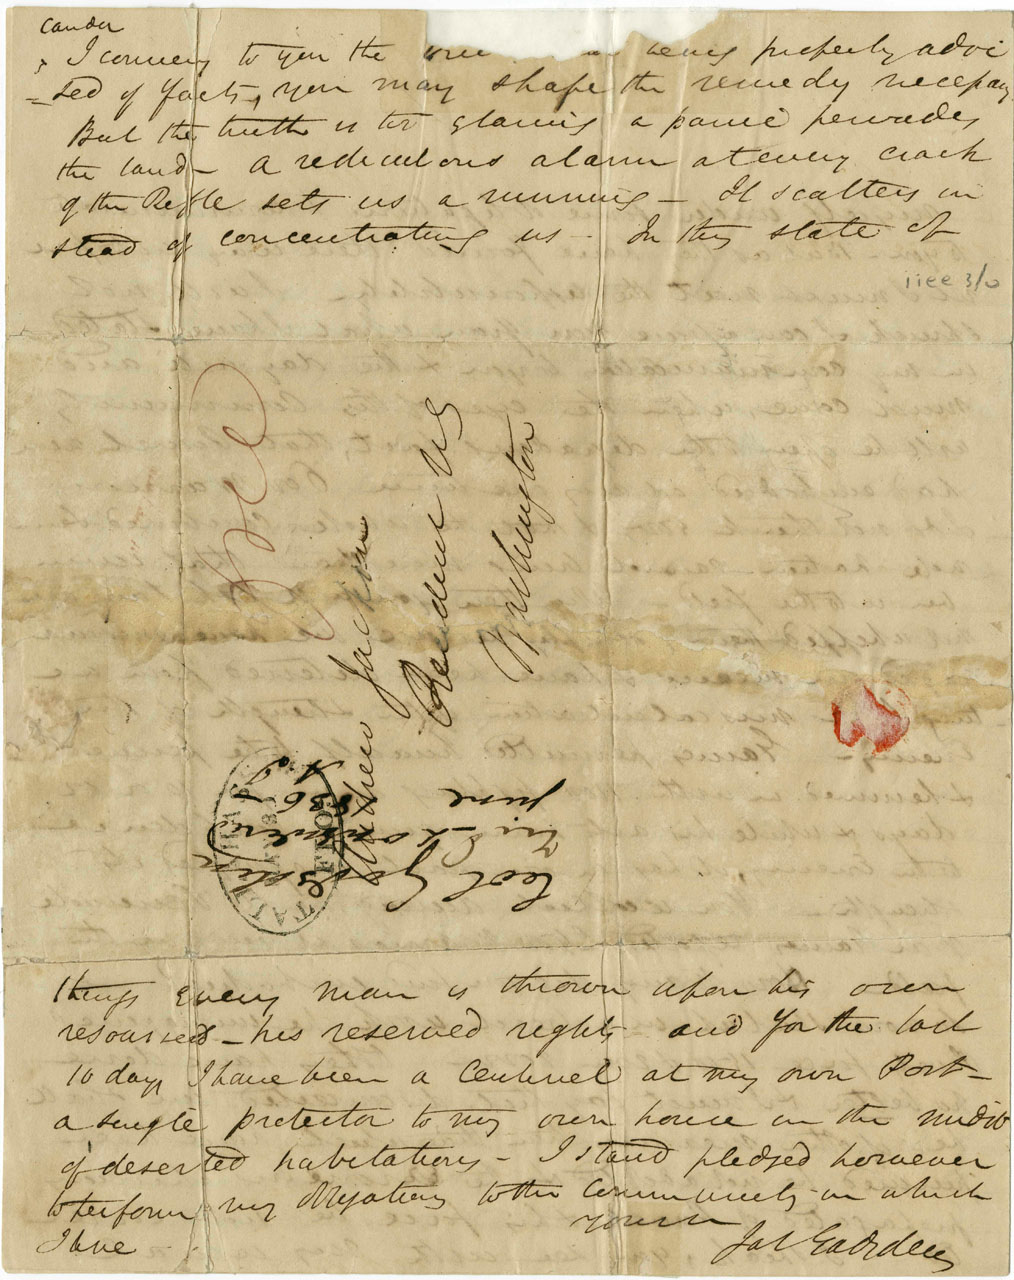 candor
I convey to you the being properly advi
=sed of facts, you may shape the remedy necessary.
But the truth is too glaring a panic pervades
the land - a rediculous alarm at every crack
of the Rifle sets us a running - It scatters in
stead of concentrating us - In this state of
Free
Andrew Jackson
President US
Washington
TALLAHASSEE
FLOR
Col Gadsden
June
things every man is thrown upon his own
resourses - his reserved rights and for the last
10 days I have been a Centinel at my own Post -
a single protector to my own house in the midst
of deserted habitations - I stand pledged however
to perform my obligations to the Community in which
I live
Yours
Jas Gadsden